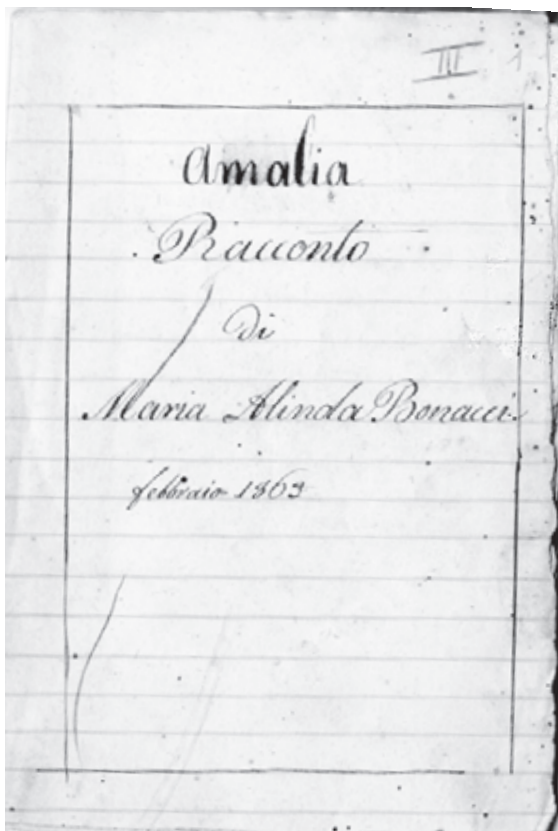 III 1
Amalia
Racconto
di
Maria Alinda Bonacci
febbraio 1863